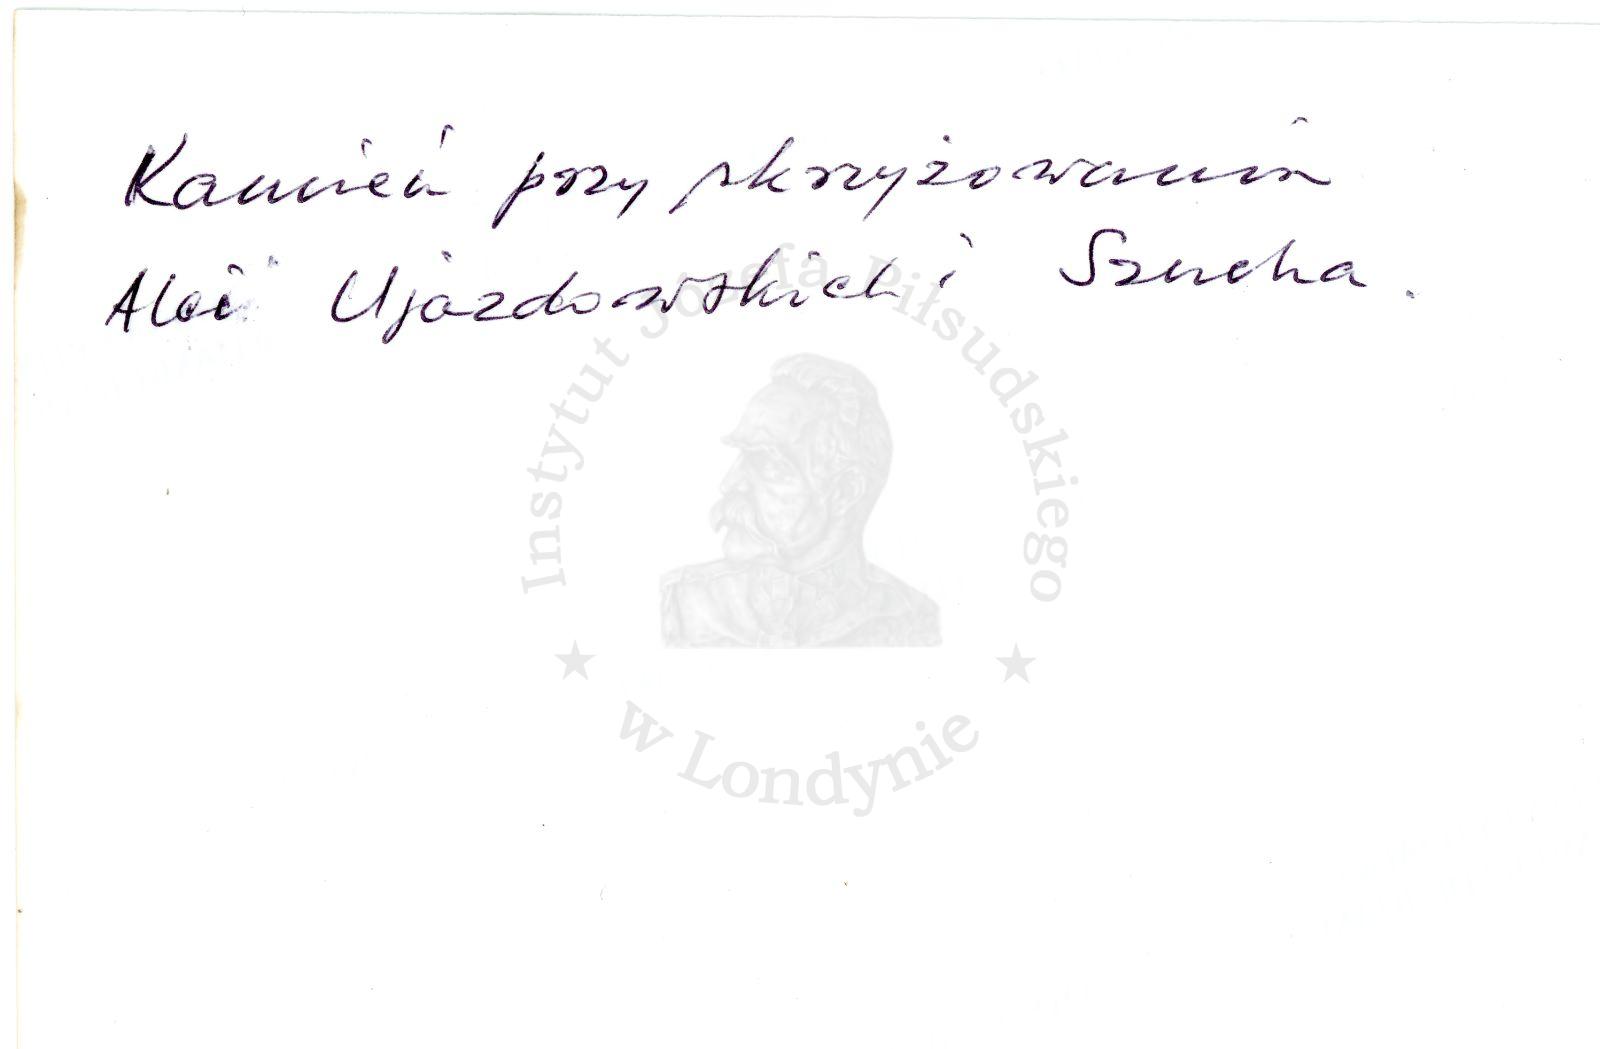 Kamień przy skrzyżowaniu
Alei Ujazdowskich i Szucha.
Instytut Józefa Piłsudskiego
w Londynie